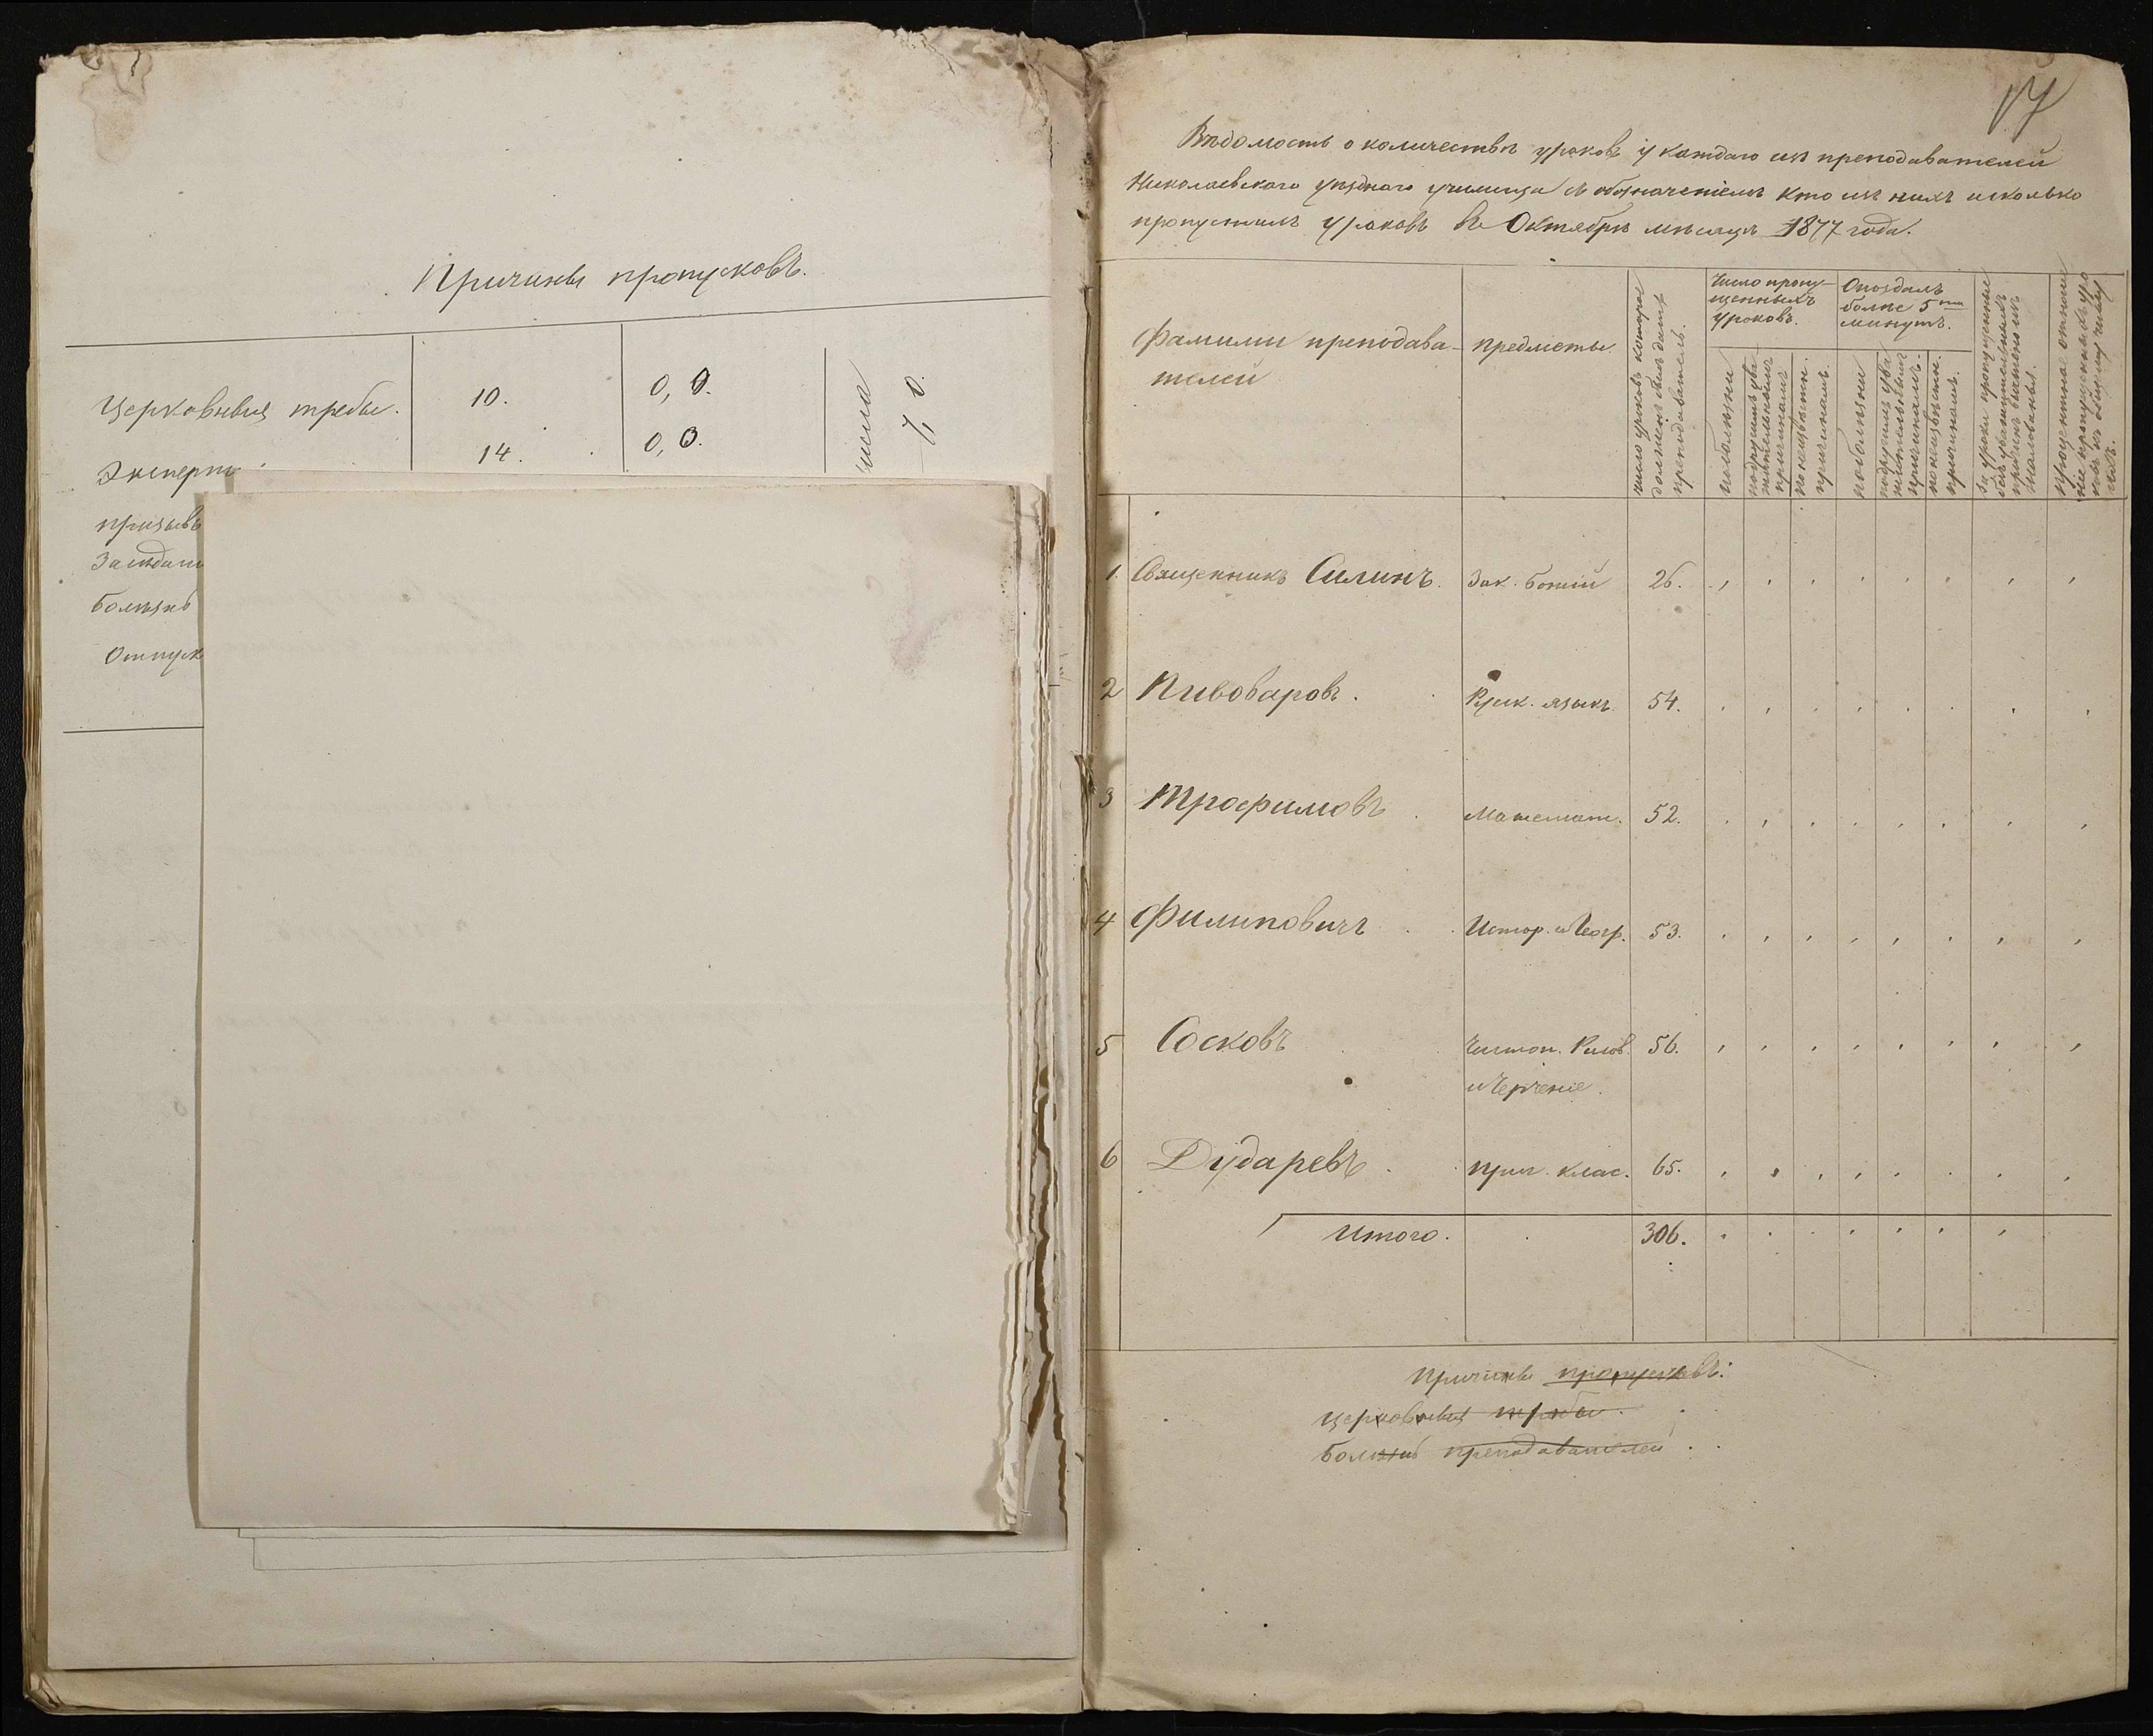 Причины пропусковъ.
Церковныя требы. 10. 0, 0. числа %
14. 0, 0.
Эксперт
призывъ
Заседани
Болѣзнь
Отпускъ
17
Вѣдомость о количествѣ уроковъ у каждаго изъ преподавателей
Николаевскаго уѣзднаго училища съ обозначеніемъ кто изъ нихъ и сколько
пропустилъ уроковъ въ Октябрѣ мѣсяцѣ 1877 года.
Фамиліи преподава-
телей
предметы
число уроковъ которое
долженъ былъ дать
преподаватель.
Число пропу-
щенныхъ
уроковъ.
Опоздалъ
болѣе 5ти
минутъ.
по болѣзни
по другимъ ува
жительнымъ
причинамъ
по неизвѣстн.
причинамъ.
по болѣзни
по другимъ ува
жительнымъ
причинамъ.
по неизвѣстн.
причинамъ.
За уроки пропущенные
безъ уважительныхъ
причинъ вычтено изъ
жалованья.
Процентное отноше
ніе пропущенныхъ уро
ковъ къ общему числу
ихъ.
1. Священникъ Силинъ. Зак. Божій 26.
2 Пивоваровъ. Руск. языкъ. 54.
3 Трофимовъ Математ. 52.
4 Филиповичъ Истор. и Геогр. 53.
5 Сосковъ Чистоп. Рисов. 56.
и Черченіе.
6 Дударевъ. приг. клас. 65.
Итого. 306.
Причины пропусковъ:
Церковныя требы.
Болѣзнь преподавателей.